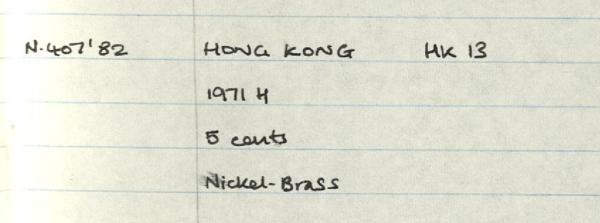 N.407'82 HONG KONG HK 13
1971 H
5 cents
Nickel-Brass